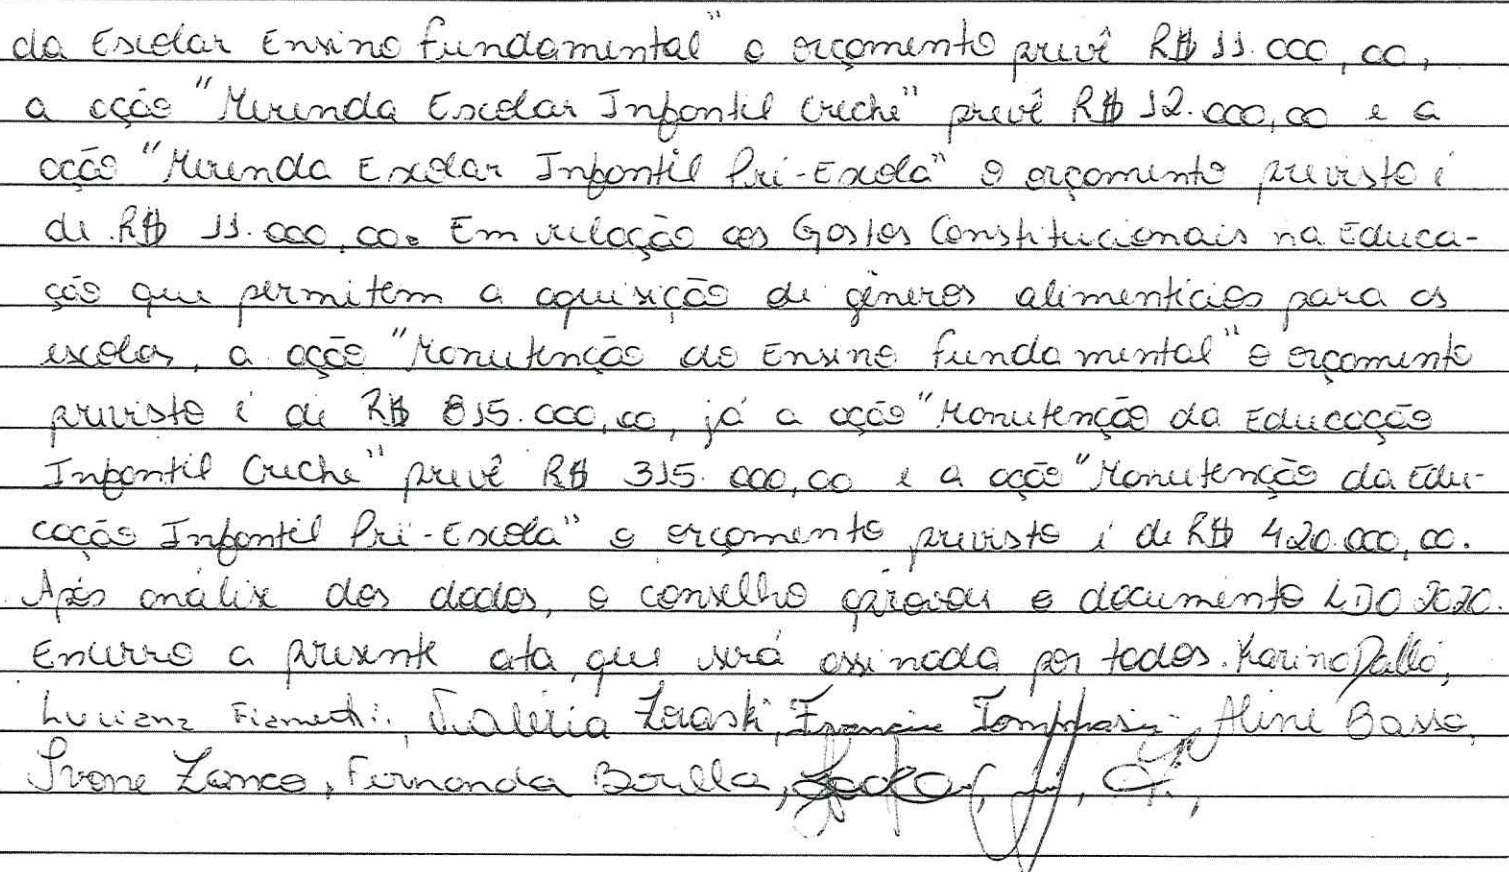 da Escolar Ensino Fundamental" o orçamento prevê R$ 11.000,00,
a ação "Merenda Escolar Infantil Creche" prevê R$ 12.000,00 e a
ação "Merenda Escolar Infantil Pré-Escola" o orçamento previsto é
de R$ 11.000,00. Em relação aos Gastos Constitucionais na Educa-
ção que permitem a aquisição de gêneros alimentícios para as
escolas, a ação "Manutenção do Ensino Fundamental" o orçamento
previsto é de R$ 815.000,00, já a ação "Manutenção da Educação
Infantil Creche" prevê R$ 315.000,00 e a ação "Manutenção da Edu-
cação Infantil Pré-Escola" o orçamento previsto é de R$ 420.000,00.
Após análise dos dados, o conselho aprovou o documento LDO 2020.
Encerro a presente ata, que será assinada por todos. Karine Dalló,
Luciana, Valéria Zeraski, Aline Basso,
Ivone Zanco, Fernanda Borilla,